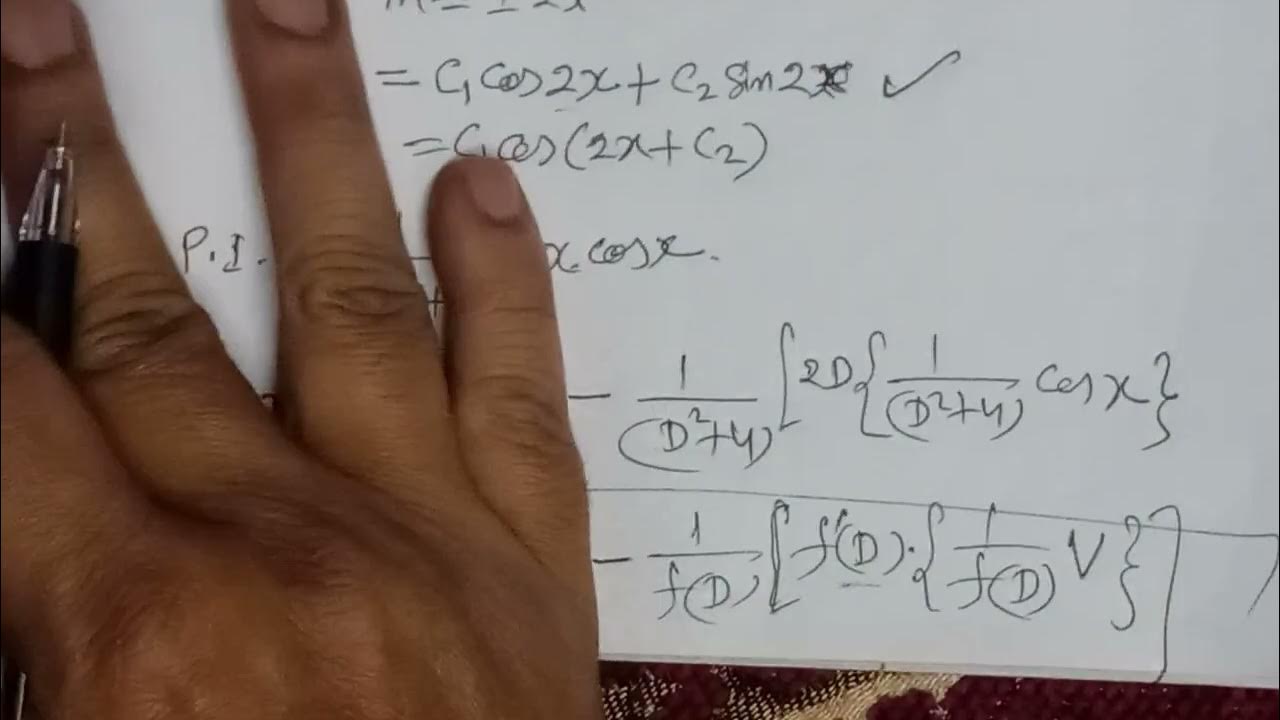 = C₁ cos2x + C₂ sin2x ✓
= C₁ cos(2x + C₂)
P.I. x cosx.
- 1/(D²+4) [2D{1/(D²+4) cos x}
- 1/f(D) [f'(D).{1/f(D) V}]